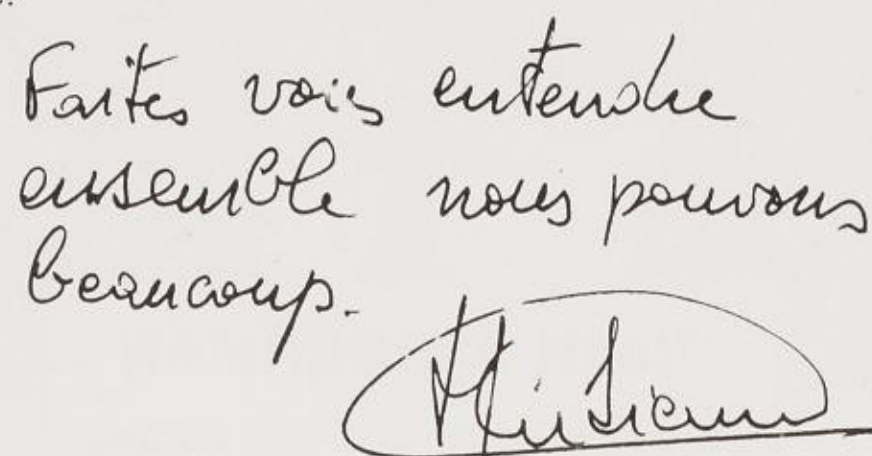 Faites vous entendre
ensemble nous pouvons
beaucoup.